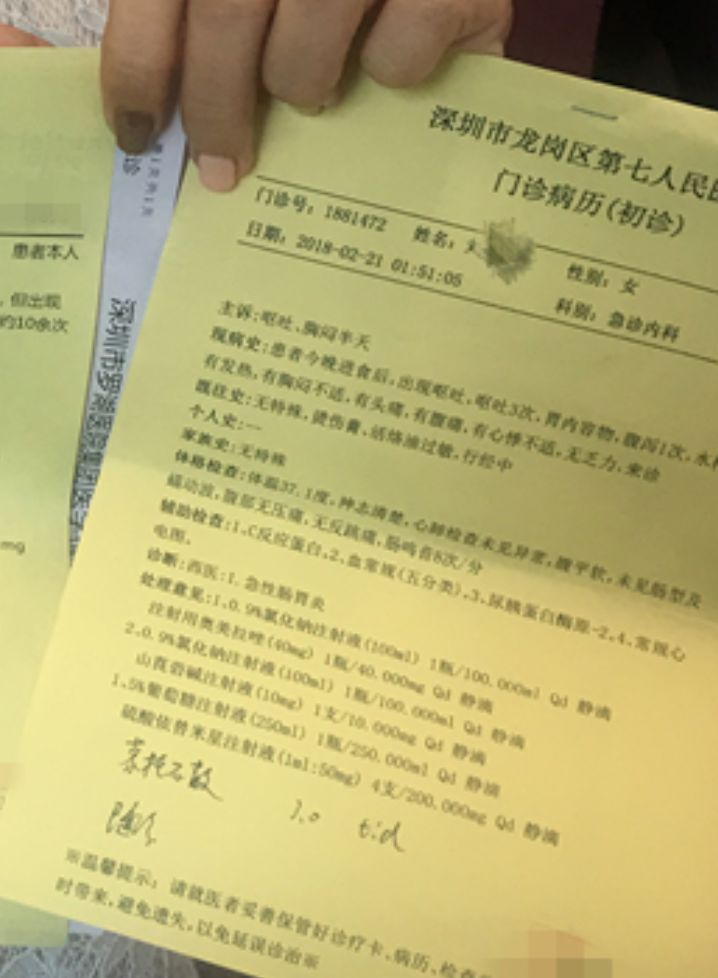 深圳市龙岗区第七人民
门诊病历(初诊)
门诊号: 1881472 姓名: 性别: 女
日期: 2018-02-21 01:51:05 科别: 急诊内科
主诉:呕吐,胸闷半天
现病史:患者今晚进食后,出现呕吐,呕吐3次,胃内容物,腹泻1次,水样
有发热,有胸闷不适,有头痛,有腹痛,有心悸不适,无乏力,来诊
既往史:无特殊,烫伤膏,活络油过敏,行经中
个人史:一
家族史:无特殊
体格检查:体温37.1度,神志清楚,心肺检查未见异常,腹平软,未见肠型及
蠕动波,腹部无压痛,无反跳痛,肠鸣音8次/分
辅助检查:1、C反应蛋白,2、血常规(五分类),3、尿胰蛋白酶原-2,4、常规心
电图,
诊断:西医:1. 急性肠胃炎
处理意见:1.0.9%氯化钠注射液(100ml) 1瓶/100.000ml Qd 静滴
注射用奥美拉唑(40mg) 1瓶/40.000mg Qd 静滴
2.0.9%氯化钠注射液(100ml) 1瓶/100.000ml Qd 静滴
山莨菪碱注射液(10mg) 1支/10.000mg Qd 静滴
1.5%葡萄糖注射液(250ml) 1瓶/250.000ml Qd 静滴
硫酸依替米星注射液(1ml:50mg) 4支/200.000mg Qd 静滴
蒙托石散 tid
※温馨提示: 请就医者妥善保管好诊疗卡、病历、检查
时带来,避免遗失,以免延误诊治※
患者本人
,但出现
约10余次
mg
诊
第1页共1页
深圳市罗湖医院集团医学